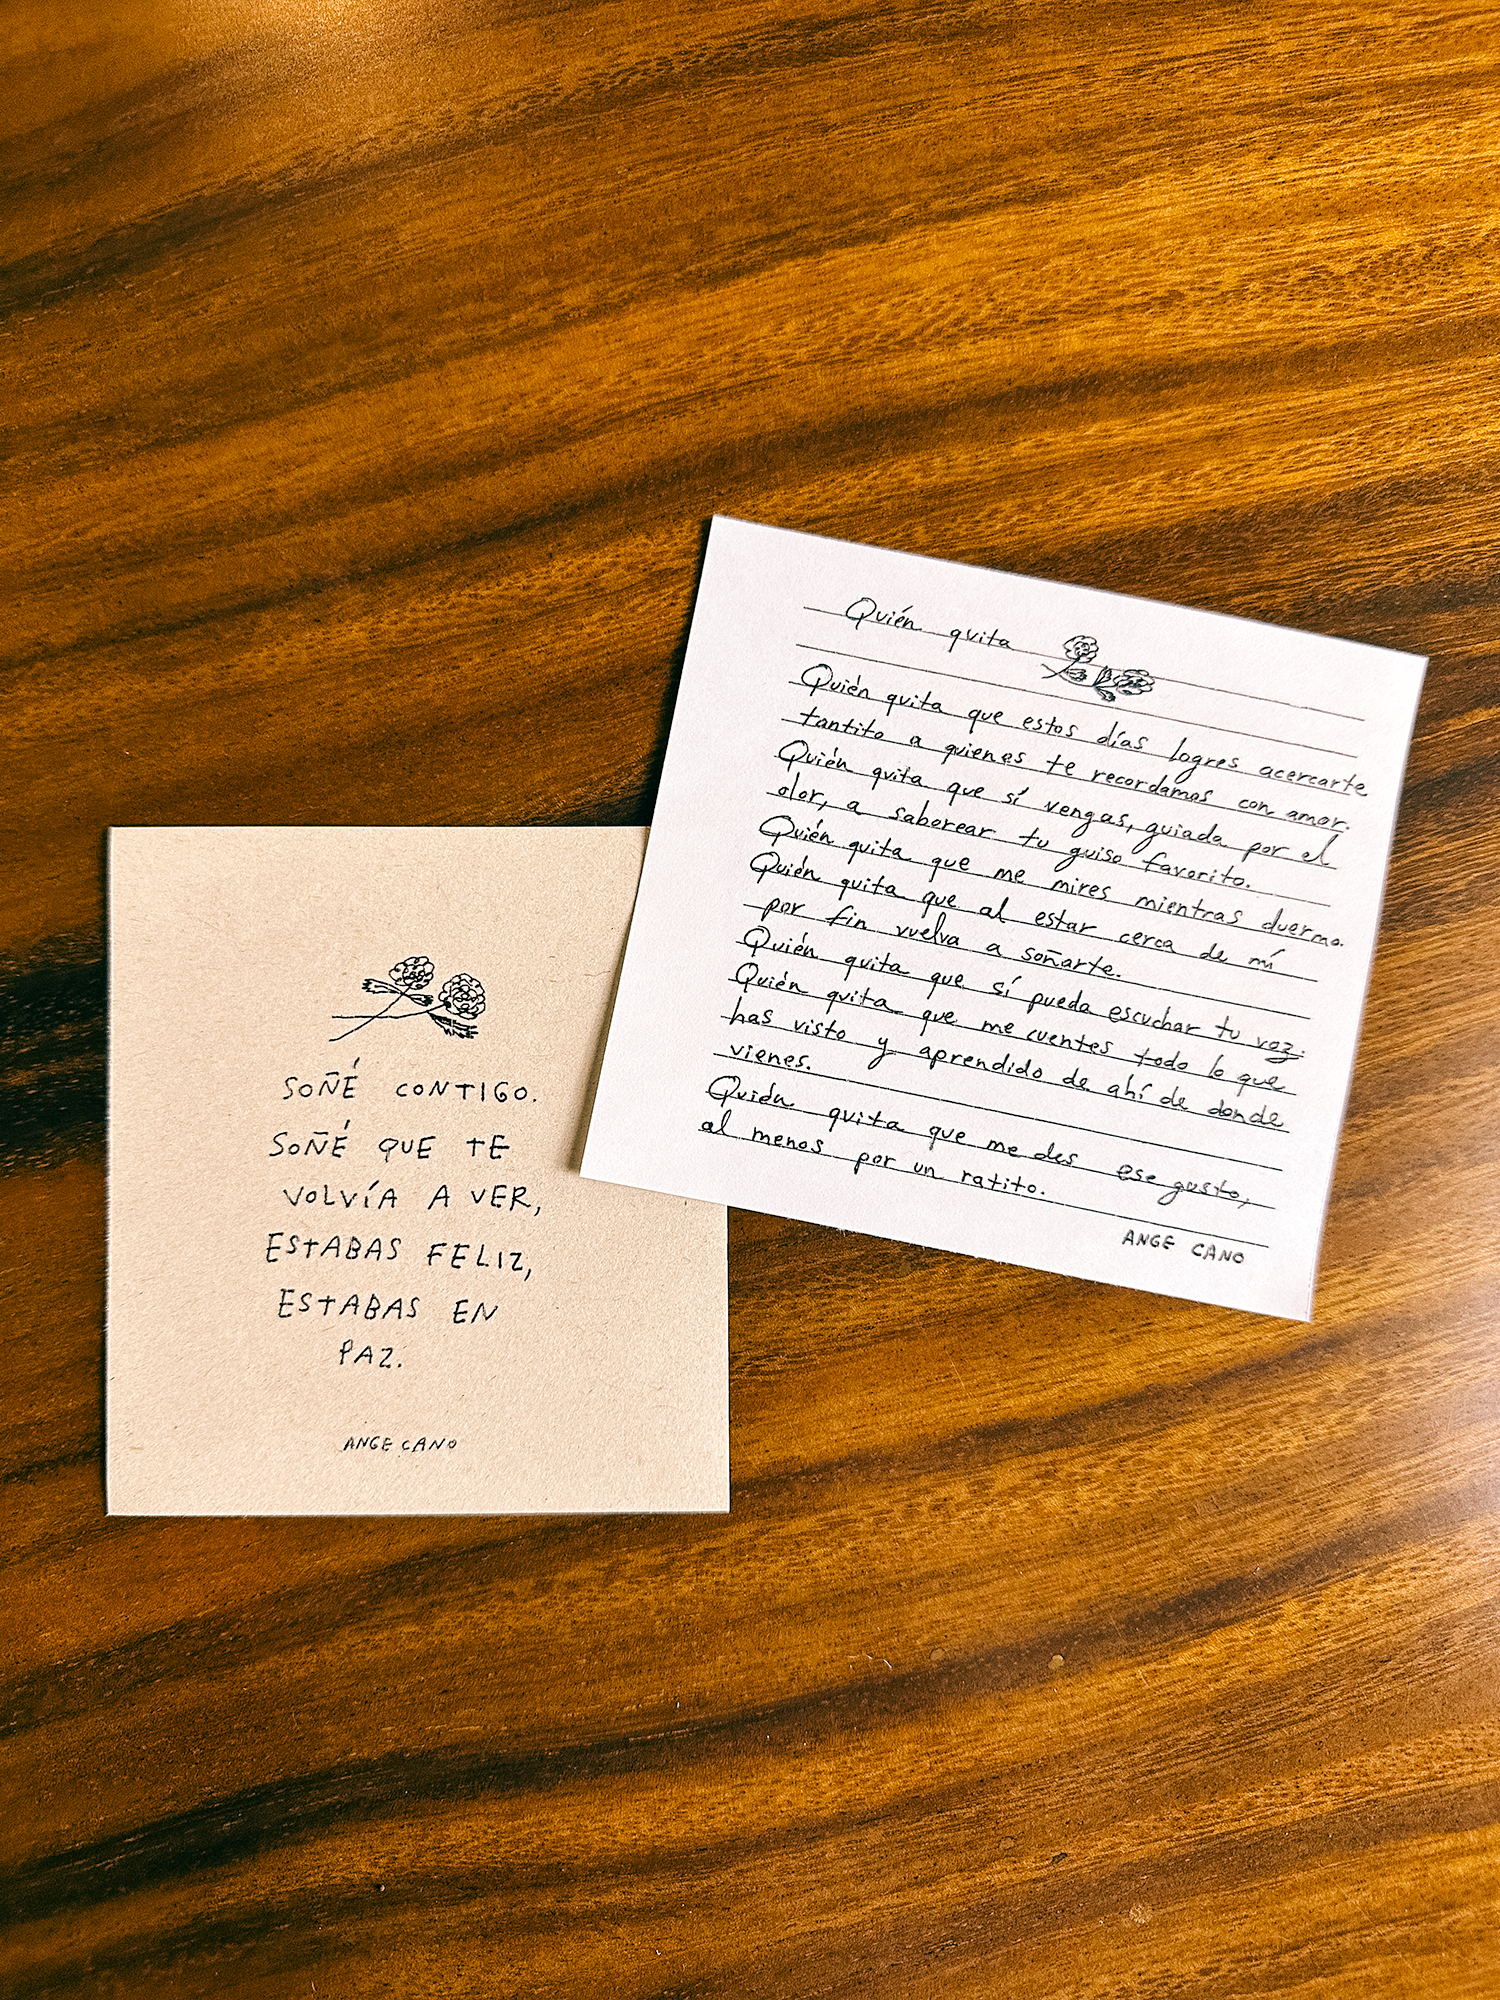 SOÑÉ CONTIGO.
SOÑÉ QUE TE
VOLVÍA A VER,
ESTABAS FELIZ,
ESTABAS EN
PAZ.
ANGE CANO
Quién quita
Quién quita que estos días logres acercarte
tantito a quienes te recordamos con amor.
Quién quita que sí vengas, guiada por el
olor, a saborear tu guiso favorito.
Quién quita que me mires mientras duermo.
Quién quita que al estar cerca de mí
por fin vuelva a soñarte.
Quién quita que sí pueda escuchar tu voz.
Quién quita que me cuentes todo lo que
has visto y aprendido de ahí de donde
vienes.
Quién quita que me des ese gusto,
al menos por un ratito.
ANGE CANO